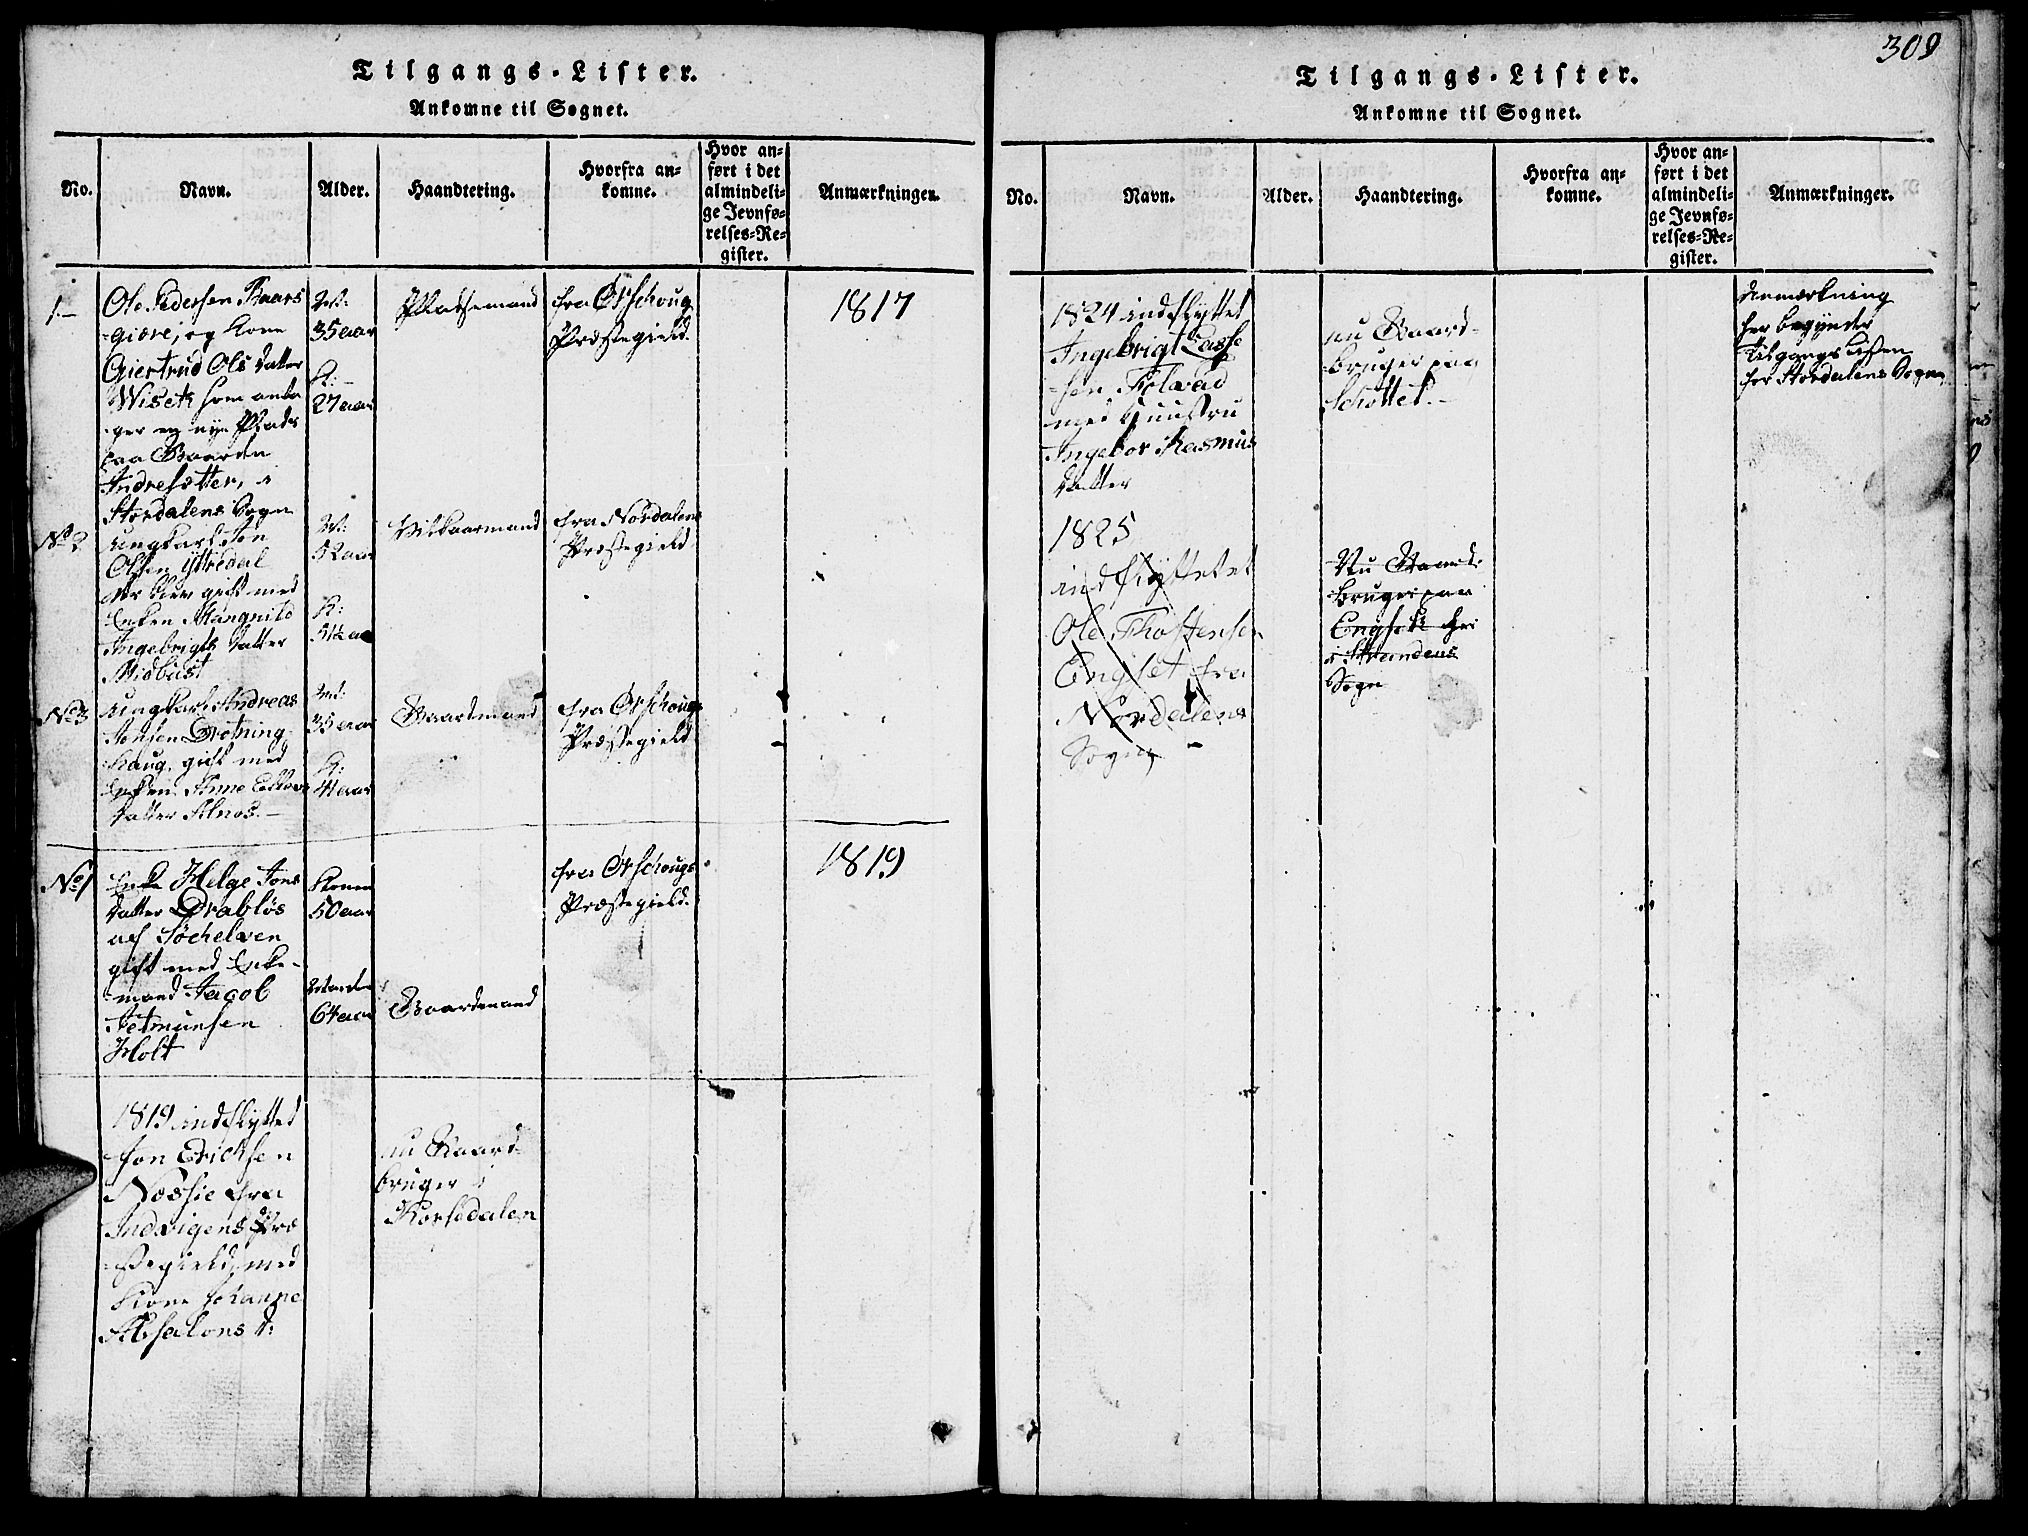 Tilgangs-Lister.
Ankomne til Sognet.
No.
Navn.
Alder.
Haandtering.
Hvorfra an-
komne.
Hvor an-
ført i det
almindeli-
ge Jevnfø-
relses-Re-
gister.
Anmærkninger.
1.-
Ole Pedersen Kaars
giære, og Kone
Giertrud Ols datter
Wiseth som anta
ger en nye Plads
paa Gaarden
Indresetter, i
Stordalens Sogn
M:
35 aar
K:
27 aar
Pladsemand
fra Ørschoug
Præstegield.
1817
No 2
Ungkarl Jon
Olsen Ytredal
er blev gift med
Enken Mangnild
Ingebrigts datter
Midbust
M:
52 aar
K:
51½ aar
Vilkaarmand
fra Nordalens
Præstegield
No 3
Ungkarl Andreas
Jonsen Drotning
haug, gift med
Enken Anne
datter Alnos.-
M:
35 aar
K:
41 aar
Gaardmand
fra Ørschougs
Præstegield
No 1
Enke Helge Jons
datter Drabløs
af Söchelven
gift med Enke-
mand Jacob
Jetmunsen
Holt
Konen
50 aar
Manden
64 aar
Gaardmand
fra Ørschougs
Præstegield.
1819
1819 indflyttet
Jon Erichsen
Næssie fra
Indvigens Præ
stegield, med
Kone Johanne
Absalons d:
nu Gaard
bruger i
Korsedalen
309
Tilgangs-Lister.
Ankomne til Sognet.
No.
Navn.
Alder.
Haandtering.
Hvorfra an-
komne.
Hvor an-
ført i det
almindeli-
ge Jevnfø-
relses-Re-
gister.
Anmærkninger.
1824 indflyttet
Ingebrigt Lasse
sen Fielvad
med Huustru
Ingebor Rasmus
datter
nu Gaard-
bruger paa
Schottet.-
Anmærkning
her begynder
Tilgangs Listen
for Stordalens Sogn
1825
indflyttet
Ole Thostensen
Engset fra
Nordalens
Sogn
Nu Gaard-
bruger paa
Engset
i Strandens
Sogn